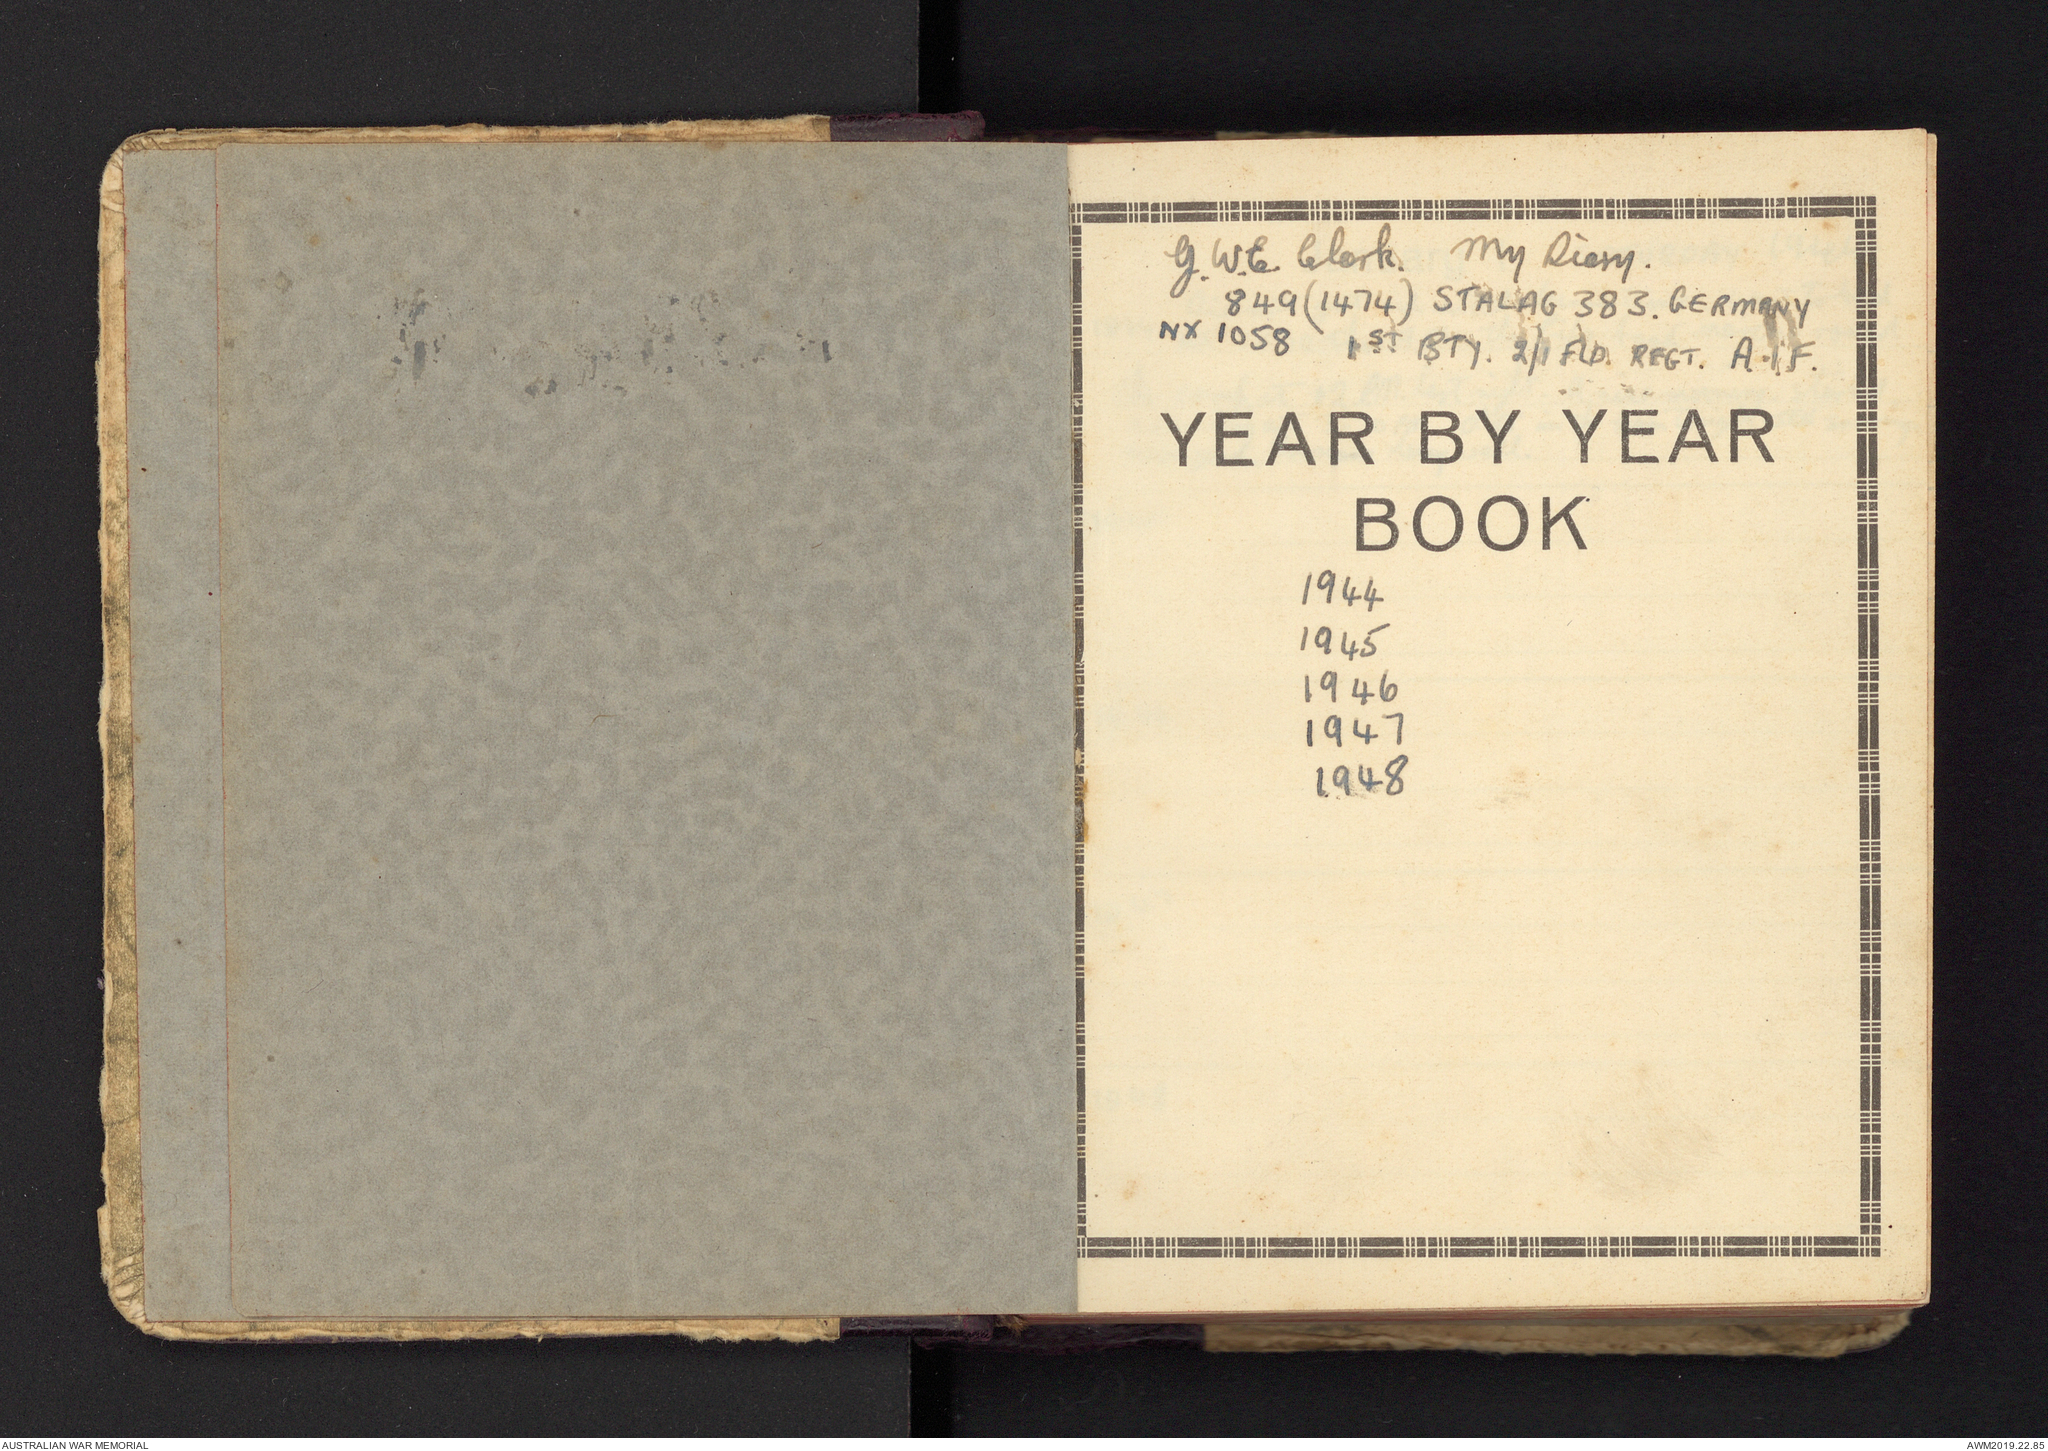 G. W.E. Clark. My Diary.
849 (1474) STALAG 383. GERMANY
NX 1058 1ST BTY. 2/1 FLD. REGT. A.I.F.
YEAR BY YEAR
BOOK
1944
1945
1946
1947
1948
AUSTRALIAN WAR MEMORIAL
AWM2019.22.85